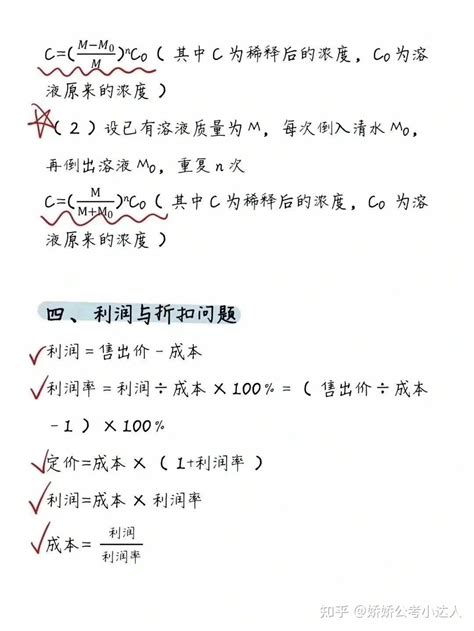 C=(\frac{M-M₀}{M})ⁿC₀（其中C为稀释后的浓度，C₀为溶
液原来的浓度）
（2）设已有溶液质量为M，每次倒入清水M₀，
再倒出溶液M₀，重复n次
C=(\frac{M}{M+M₀})ⁿC₀（其中C为稀释后的浓度，C₀为溶
液原来的浓度）
四、利润与折扣问题
利润=售出价-成本
利润率=利润÷成本×100%=（售出价÷成本
-1）×100%
定价=成本×（1+利润率）
利润=成本×利润率
成本=\frac{利润}{利润率}
知乎 @娇娇公考小达人